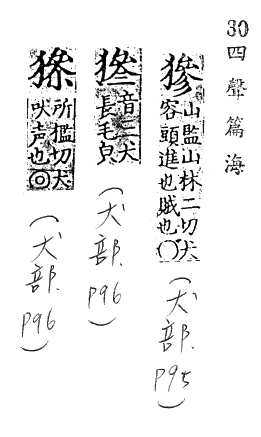 30
四聲篇海
㺑
山監山林二切犬
容頭進也賊也〇
(犬部.P95)
音三犬
長毛皃
(犬部.P96)
所檻切犬
吠声也◎
(犬部.P96)